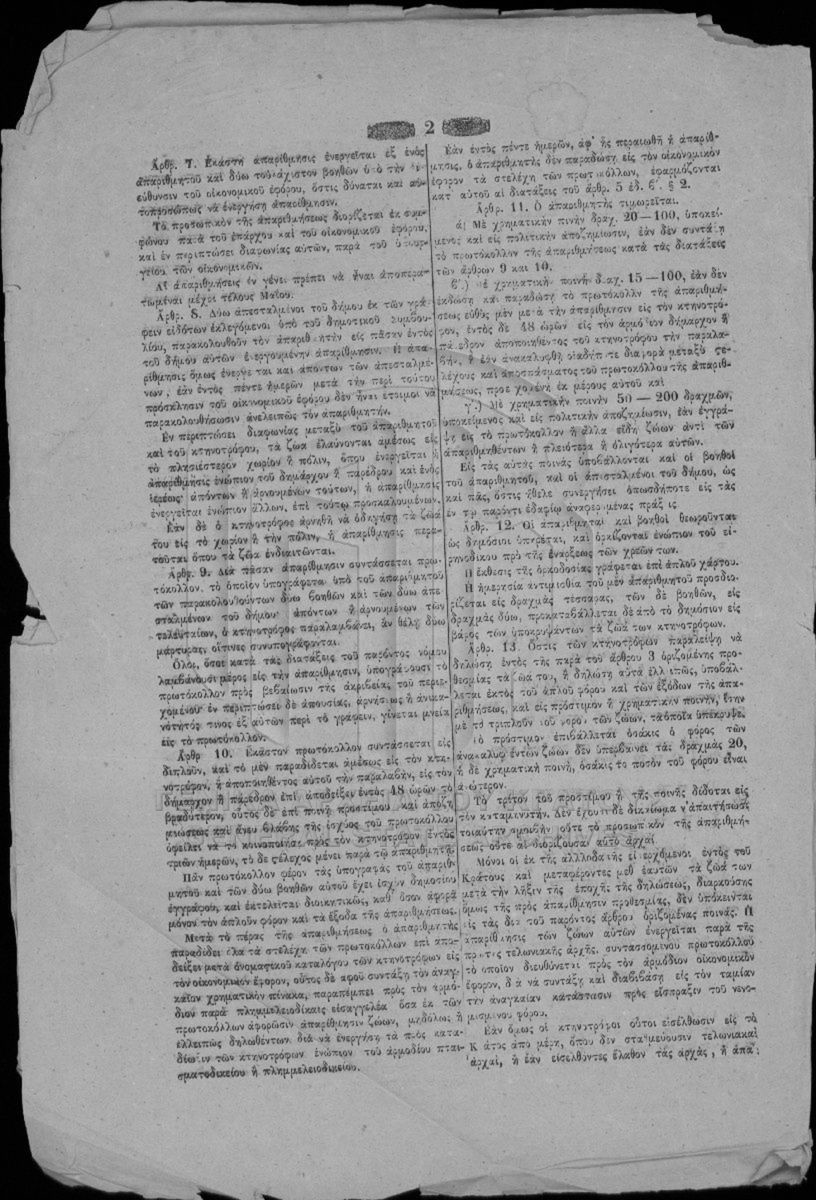 2
Ἀρθρ. 7. Ἑκάστη ἀπαρίθμησις ἐνεργεῖται ἐξ ἑνὸς
ἀπαριθμητοῦ καὶ δύω τοὐλάχιστον βοηθῶν ὑπὸ τὴν
εὐθύνσιν τοῦ οἰκονομικοῦ ἐφόρου, ὅστις δύναται καὶ αὐ-
τοπροσώπως νὰ ἐνεργήσῃ ἀπαρίθμησιν.
Τὸ προσωπικὸν τῆς ἀπαριθμήσεως διορίζεται ἐκ συμ-
φώνου παρὰ τοῦ ἐπάρχου καὶ τοῦ οἰκονομικοῦ ἐφόρου,
καὶ ἐν περιπτώσει διαφωνίας αὐτῶν, παρὰ τοῦ ὑπουρ-
γείου τῶν οἰκονομικῶν.
Αἱ ἀπαριθμήσεις ἐν γένει πρέπει νὰ ἦναι ἀποπερα-
τωμέναι μέχρι τέλους Μαΐου.
Ἀρθρ. 8. Δύω ἀπεσταλμένοι τοῦ δήμου ἐκ τῶν γρά-
φειν εἰδότων ἐκλεγόμενοι ὑπὸ τοῦ δημοτικοῦ συμβου-
λίου, παρακολουθοῦν τὸν ἀπαριθμητὴν εἰς πᾶσαν ἐντὸς
τοῦ δήμου αὐτῶν ἐνεργουμένην ἀπαρίθμησιν. Ἡ ἀπα-
ρίθμησις ὅμως ἐνεργεῖται καὶ ἀπόντων τῶν ἀπεσταλμέ-
νων, ἐὰν ἐντὸς πέντε ἡμερῶν μετὰ τὴν περὶ τούτου
πρόσκλησιν τοῦ οἰκονομικοῦ ἐφόρου δὲν ἦναι ἕτοιμοι νὰ
παρακολουθήσωσιν ἀνελλιπῶς τὸν ἀπαριθμητήν.
Ἐν περιπτώσει διαφωνίας μεταξὺ τοῦ ἀπαριθμητοῦ
καὶ τοῦ κτηνοτρόφου, τὰ ζῶα ἐλαύνονται ἀμέσως εἰς
τὸ πλησιέστερον χωρίον ἢ πόλιν, ὅπου ἐνεργεῖται ἡ
ἀπαρίθμησις ἐνώπιον τοῦ δημάρχου ἢ παρέδρου καὶ ἑνὸς
ἱερέως· ἀπόντων ἢ ἀρνουμένων τούτων, ἡ ἀπαρίθμησις
ἐνεργεῖται ἐνώπιον ἄλλων, ἐπὶ τούτῳ προσκαλουμένων.
Ἐὰν δὲ ὁ κτηνοτρόφος ἀρνηθῇ νὰ ὁδηγήσῃ τὰ ζῶά
του εἰς τὸ χωρίον ἢ τὴν πόλιν, ἡ ἀπαρίθμησις περα-
τοῦται ὅπου τὰ ζῶα ἐνδιαιτῶνται.
Ἀρθρ. 9. Διὰ πᾶσαν ἀπαρίθμησιν συντάσσεται πρω-
τόκολλον, τὸ ὁποῖον ὑπογράφεται ὑπὸ τοῦ ἀπαριθμητοῦ
τῶν παρακολουθούντων δύω βοηθῶν καὶ τῶν δύω ἀπε-
σταλμένων τοῦ δήμου· ἀπόντων ἢ ἀρνουμένων τῶν
τελευταίων, ὁ κτηνοτρόφος παραλαμβάνει, ἂν θέλῃ δύω
μάρτυρας, οἵτινες συνυπογράφονται.
Ὅλοι, ὅσοι κατὰ τὰς διατάξεις τοῦ παρόντος νόμου
λαμβάνουσι μέρος εἰς τὴν ἀπαρίθμησιν, ὑπογράφουσι τὸ
πρωτόκολλον πρὸς βεβαίωσιν τῆς ἀκριβείας τοῦ περιε-
χομένου· ἐν περιπτώσει δὲ ἀπουσίας, ἀρνήσεως ἢ ἀνικα-
νότητός τινος ἐξ αὐτῶν περὶ τὸ γράφειν, γίνεται μνεία
εἰς τὸ πρωτόκολλον.
Ἀρθρ 10. Ἕκαστον πρωτόκολλον συντάσσεται εἰς
διπλοῦν, καὶ τὸ μὲν παραδίδεται ἀμέσως εἰς τὸν κτη-
νοτρόφον, ἢ ἀποποιηθέντος αὐτοῦ τὴν παραλαβὴν, εἰς τὸν
δήμαρχον ἢ πάρεδρον ἐπὶ ἀποδείξει ἐντὸς 48 ὡρῶν τὸ
βραδύτερον, οὗτος δὲ ἐπὶ ποινῇ προστίμου καὶ ἀποζη-
μιώσεως καὶ ἄνευ βλάβης τῆς ἰσχύος τοῦ πρωτοκόλλου
ὀφείλει νὰ τὸ κοινοποιήσῃ πρὸς τὸν κτηνοτρόφον ἐντὸς
τριῶν ἡμερῶν, τὸ δὲ στέλεχος μένει παρὰ τῷ ἀπαριθμητῇ.
Πᾶν πρωτόκολλον φέρον τὰς ὑπογραφὰς τοῦ ἀπαριθ-
μητοῦ καὶ τῶν δύω βοηθῶν αὐτοῦ ἔχει ἰσχὺν δημοσίου
ἐγγράφου, καὶ ἐκτελεῖται διοικητικῶς, καθ' ὅσον ἀφορᾷ
μόνον τὸν ἁπλοῦν φόρον καὶ τὰ ἔξοδα τῆς ἀπαριθμήσεως.
Μετὰ τὸ πέρας τῆς ἀπαριθμήσεως ὁ ἀπαριθμητὴς
παραδίδει ὅλα τὰ στελέχη τῶν πρωτοκόλλων ἐπὶ ἀπο-
δείξει μετὰ ὀνομαστικοῦ καταλόγου τῶν κτηνοτρόφων εἰς
τὸν οἰκονομικὸν ἔφορον, οὗτος δὲ ἀφοῦ συντάξῃ τὸν ἀναγ-
καῖον χρηματικὸν πίνακα, παραπέμπει πρὸς τὸν ἁρμό-
διον παρὰ πλημμελειοδίκαις εἰσαγγελέα ὅσα ἐκ τῶν
πρωτοκόλλων ἀφορῶσιν ἀπαρίθμησιν ζώων, μηδόλως ἢ
ἐλλειπῶς δηλωθέντων. διὰ νὰ ἐνεργήσῃ τὰ πρὸς κατα-
δίωξιν τῶν κτηνοτρόφων ἐνώπιον τοῦ ἁρμοδίου πται-
σματοδικείου ἢ πλημμελειοδικείου.
Ἐὰν ἐντὸς πέντε ἡμερῶν, ἀφ' ἧς περαιωθῇ ἡ ἀπαρίθ-
μησις, ὁ ἀπαριθμητὴς δὲν παραδώσῃ εἰς τὸν οἰκονομικὸν
ἔφορον τὰ στελέχη τῶν πρωτοκόλλων, ἐφαρμόζονται
κατ' αὐτοῦ αἱ διατάξεις τοῦ ἀρθρ. 5 ἐδ. β'. § 2.
Ἀρθρ. 11. Ὁ ἀπαριθμητὴς τιμωρεῖται.
α) Μὲ χρηματικὴν ποινὴν δραχ. 20—100, ὑποκεί-
μενος καὶ εἰς πολιτικὴν ἀποζημίωσιν, ἐὰν δὲν συντάξῃ
τὸ πρωτόκολλον τῆς ἀπαριθμήσεως κατὰ τὰς διατάξεις
τῶν ἄρθρων 9 καὶ 10.
β'.) Μὲ χρηματικὴν ποινὴν δραχ. 15—100, ἐὰν δὲν
ἐκδώσῃ καὶ παραδώσῃ τὸ πρωτόκολλον τῆς ἀπαριθμή-
σεως εὐθὺς μὲν μετὰ τὴν ἀπαρίθμησιν εἰς τὸν κτηνοτρό-
φον, ἐντὸς δὲ 48 ὡρῶν εἰς τὸν ἁρμόδιον δήμαρχον ἢ
πάρεδρον ἀποποιηθέντος τοῦ κτηνοτρόφου τὴν παραλα-
βὴν, ἢ ἐὰν ἀνακαλυφθῇ οἱαδήποτε διαφορὰ μεταξὺ στε-
λέχους καὶ ἀποσπάσματος τοῦ πρωτοκόλλου τῆς ἀπαριθ-
μήσεως, προερχομένη ἐκ μέρους αὐτοῦ καὶ
γ'.) Μὲ χρηματικὴν ποινὴν 50—200 δραχμῶν,
ὑποκείμενος καὶ εἰς πολιτικὴν ἀποζημίωσιν, ἐὰν ἐγγρά-
ψῃ εἰς τὸ πρωτόκολλον ἢ ἄλλα εἴδη ζώων ἀντὶ τῶν
ἀπαριθμηθέντων ἢ πλειότερα ἢ ὀλιγότερα αὐτῶν.
Εἰς τὰς αὐτὰς ποινὰς ὑποβάλλονται καὶ οἱ βοηθοὶ
τοῦ ἀπαριθμητοῦ, καὶ οἱ ἀπεσταλμένοι τοῦ δήμου, ὡς
καὶ πᾶς, ὅστις ἤθελε συνεργήσει ὁπωσδήποτε εἰς τὰς
ἐν τῷ παρόντι ἐδαφίῳ ἀναφερομένας πράξεις.
Ἀρθρ. 12. Οἱ ἀπαριθμηταὶ καὶ βοηθοὶ θεωροῦνται
ὡς δημόσιοι ὑπηρέται, καὶ ὁρκίζονται ἐνώπιον τοῦ εἰ-
ρηνοδίκου πρὸ τῆς ἐνάρξεως τῶν χρεῶν των.
Ἡ ἔκθεσις τῆς ὁρκοδοσίας γράφεται ἐπὶ ἁπλοῦ χάρτου.
Ἡ ἡμερησία ἀντιμισθία τοῦ μὲν ἀπαριθμητοῦ προσδιο-
ρίζεται εἰς δραχμὰς τέσσαρας, τῶν δὲ βοηθῶν, εἰς
δραχμὰς δύω, προκαταβάλλεται δὲ ἀπὸ τὸ δημόσιον εἰς
βάρος τῶν ὑποκρυψάντων τὰ ζῶά των κτηνοτρόφων.
Ἀρθρ. 13. Ὅστις τῶν κτηνοτρόφων παραλείψῃ νὰ
δηλώσῃ ἐντὸς τῆς παρὰ τοῦ ἄρθρου 3 ὁριζομένης προ-
θεσμίας τὰ ζῶά του, ἢ δηλώσῃ αὐτὰ ἐλλιπῶς, ὑποβάλ-
λεται ἐκτὸς τοῦ ἁπλοῦ φόρου καὶ τῶν ἐξόδων τῆς ἀπα-
ριθμήσεως, καὶ εἰς πρόστιμον ἢ χρηματικὴν ποινὴν,
μὲ τὸ τριπλοῦν τοῦ φόρου τῶν ζώων, τὰ ὁποῖα ὑπέκρυψε.
Τὸ πρόστιμον ἐπιβάλλεται ὁσάκις ὁ φόρος τῶν
ἀνακαλυφθέντων ζώων δὲν ὑπερβαίνει τὰς δραχμὰς 20,
ἡ δὲ χρηματικὴ ποινὴ, ὁσάκις τὸ ποσὸν τοῦ φόρου εἶναι
ἀνώτερον.
Τὸ τρίτον τοῦ προστίμου ἢ τῆς ποινῆς δίδοται εἰς
τὸν καταμηνυτήν. Δὲν ἔχουσι δὲ δικαίωμα ν' ἀπαιτήσωσι
τοιαύτην ἀμοιβὴν οὔτε τὸ προσωπικὸν τῆς ἀπαριθμή-
σεως οὔτε αἱ διορίζουσαι αὐτὸ ἀρχαί.
Μόνοι οἱ ἐκ τῆς ἀλλοδαπῆς εἰσερχόμενοι ἐντὸς τοῦ
Κράτους καὶ μεταφέροντες μεθ' ἑαυτῶν τὰ ζῶά των
μετὰ τὴν λῆξιν τῆς ἐποχῆς τῆς δηλώσεως, διαρκούσης
ὅμως τῆς πρὸς ἀπαρίθμησιν προθεσμίας, δὲν ὑπόκεινται
εἰς τὰς διὰ τοῦ παρόντος ἄρθρου ὁριζομένας ποινάς. Ἡ
ἀπαρίθμησις τῶν ζώων αὐτῶν ἐνεργεῖται παρὰ τῆς
πρώτης τελωνιακῆς ἀρχῆς, συντασσομένου πρωτοκόλλου
τὸ ὁποῖον διευθύνεται πρὸς τὸν ἁρμόδιον οἰκονομικὸν
ἔφορον, διὰ νὰ συντάξῃ καὶ διαβιβάσῃ εἰς τὸν ταμίαν
τὴν ἀναγκαίαν κατάστασιν πρὸς εἴσπραξιν τοῦ νενο-
μισμένου φόρου.
Ἐὰν ὅμως οἱ κτηνοτρόφοι οὗτοι εἰσέλθωσιν εἰς τὸ
Κράτος ἀπὸ μέρη, ὅπου δὲν σταθμεύουσιν τελωνιακαὶ
ἀρχαὶ, ἢ ἐὰν εἰσελθόντες ἔλαθον τὰς ἀρχὰς, ἡ ἀπα-